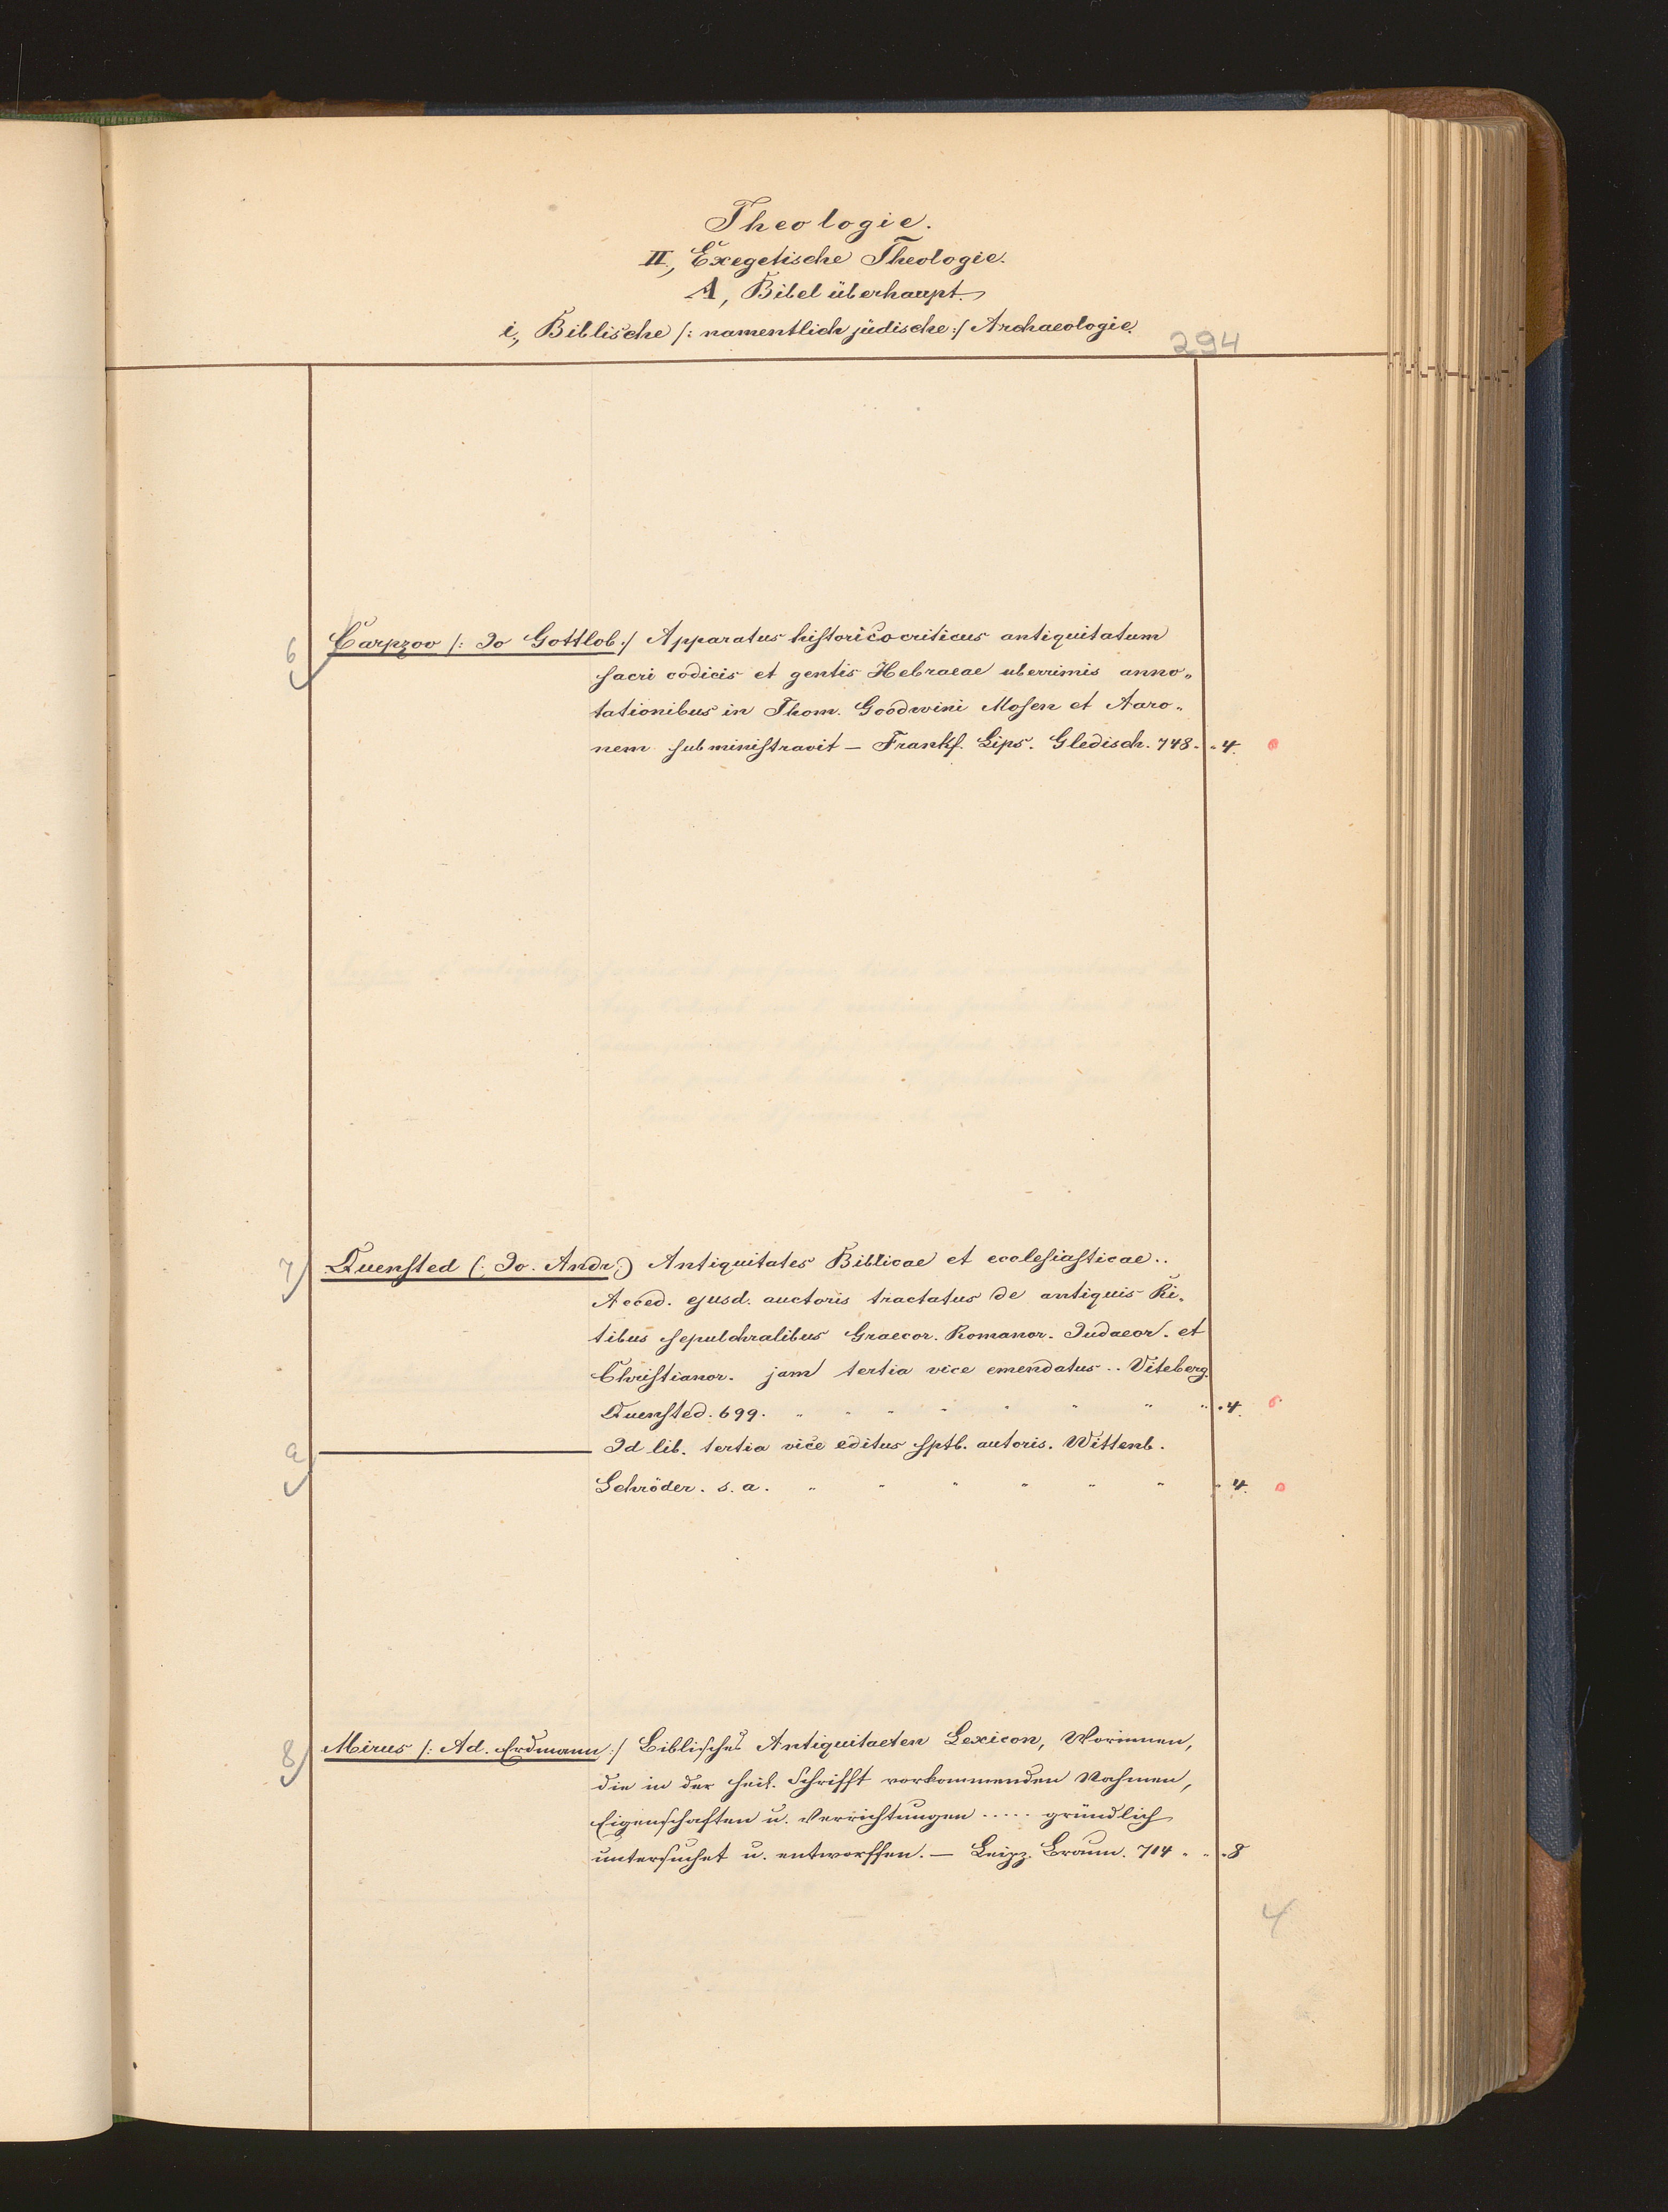 Theologie.
II, Exegetische Theologie.
A, Bibel überhaupt.
i., Biblische /: namentlich jüdische :/ Archaeologie.
294
6 Carpzov /: Jo Gottlob :/ Apparatus historico criticus antiquitatum
sacri codicis et gentis Hebraeae uberrimis anno„
tationibus in Thom. Goodwini Mosen et Aaro„
nem subministravit – Frankf. Lips. Gledisch. 748. 4.
7 Quensted (: Jo. Andr :) Antiquitates Biblicae et ecclesiasticae..
Acced. ejusd. auctoris tractatus de antiquis Ri„
tibus sepulchralibus Graecor. Romanor. Judaeor. et
Christianor. jam tertia vice emendatus .. Viteberg.
Quensted. 699. " " " " " " " " 4.
a Id lib. tertia vice editus sptb. autoris. Wittenb.
Schröder. s. a. " " " " " " " 4.
8 Mirus /: Ad. Erdmann :/ Biblisches Antiquitaeten Lexicon, Worinnen,
die in der heil. Schrifft vorkommenden Nahmen,
Eigenschaften u. Verrichtungen ..... gründlich
untersuchet u. entworffen. – Leipz. Braun. 714 " " 8
4